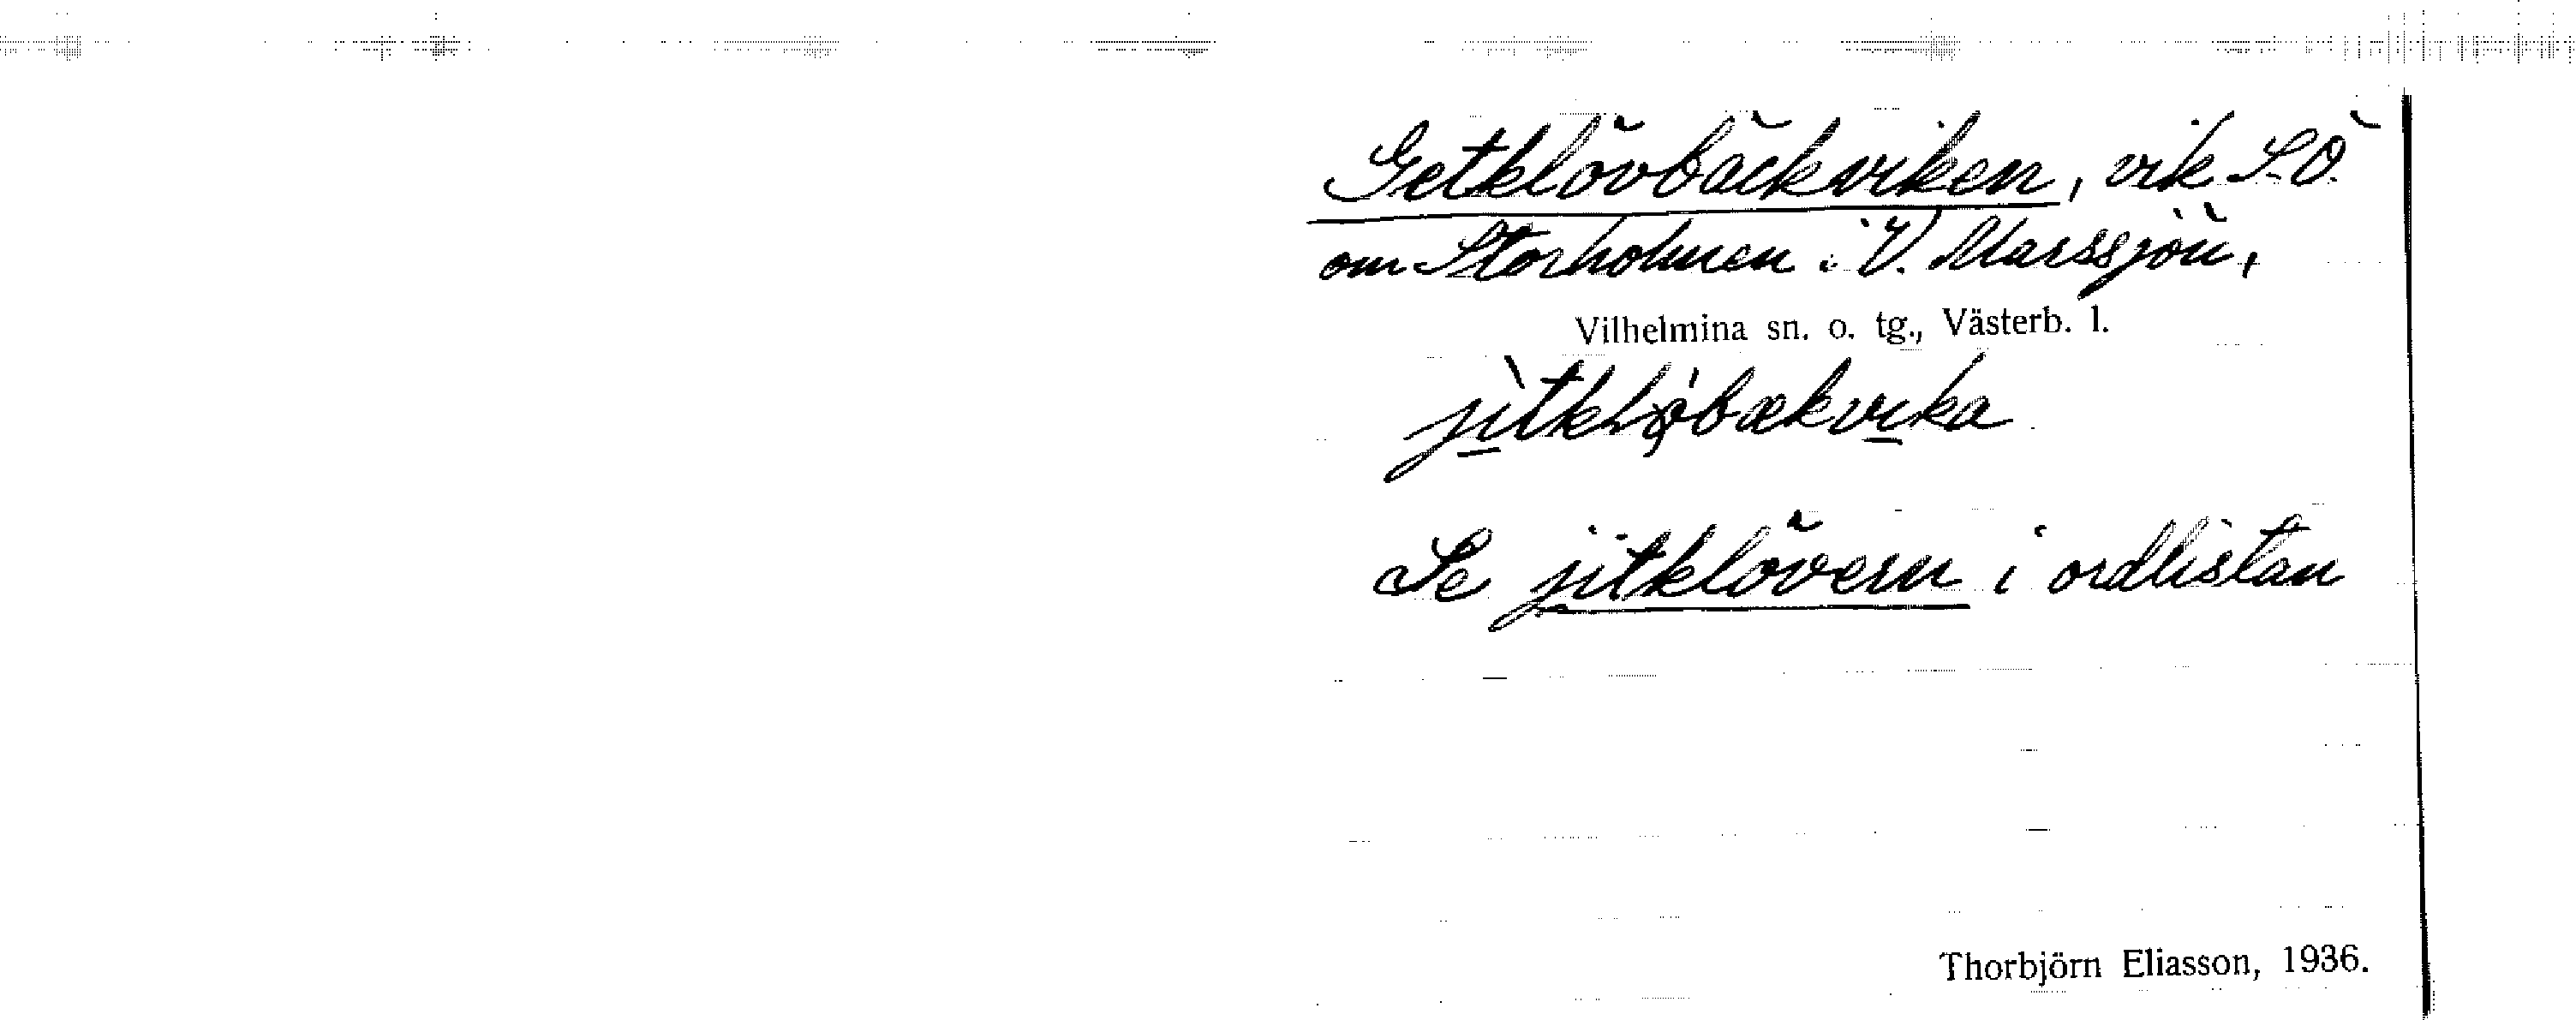 Getklövbäckviken, vik S.Ö.
om Storholmen i V. Marssjön,
Vilhelmina sn. o. tg., Västerb. l.
Se jitklövern i ordlistan
Thorbjörn Eliasson, 1936.